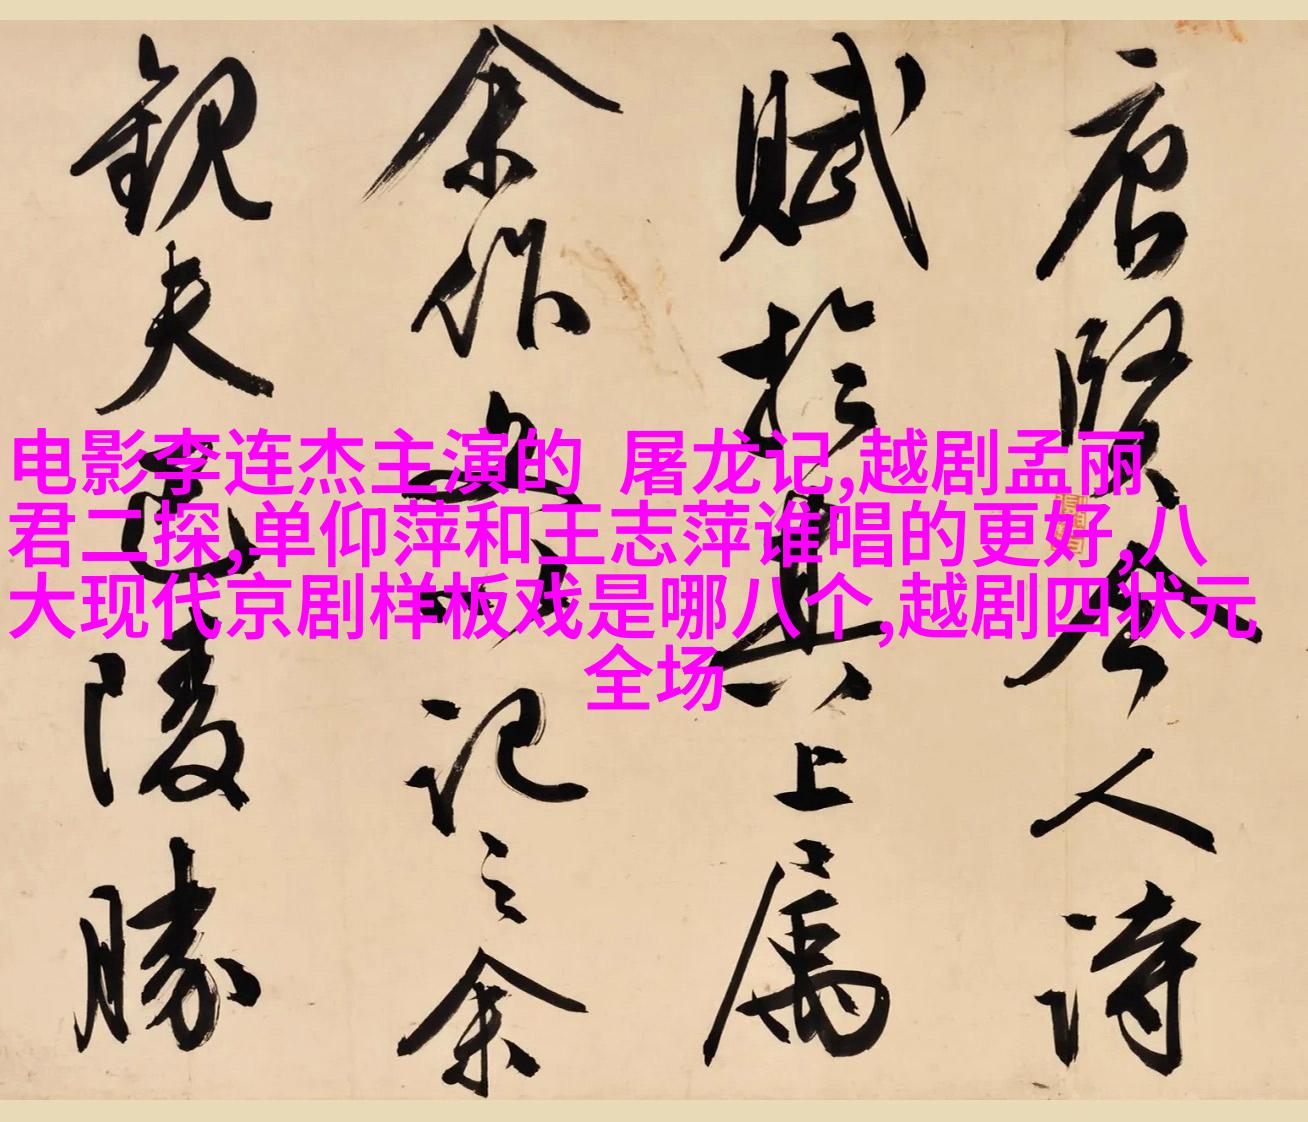 电影李连杰主演的 屠龙记,越剧孟丽
君二探,单仰萍和王志萍谁唱的更好,八
大现代京剧样板戏是哪八个,越剧四状元
全场
唐賢今人詩
賦於其上屬
余作文以記之余
觀夫巴陵勝